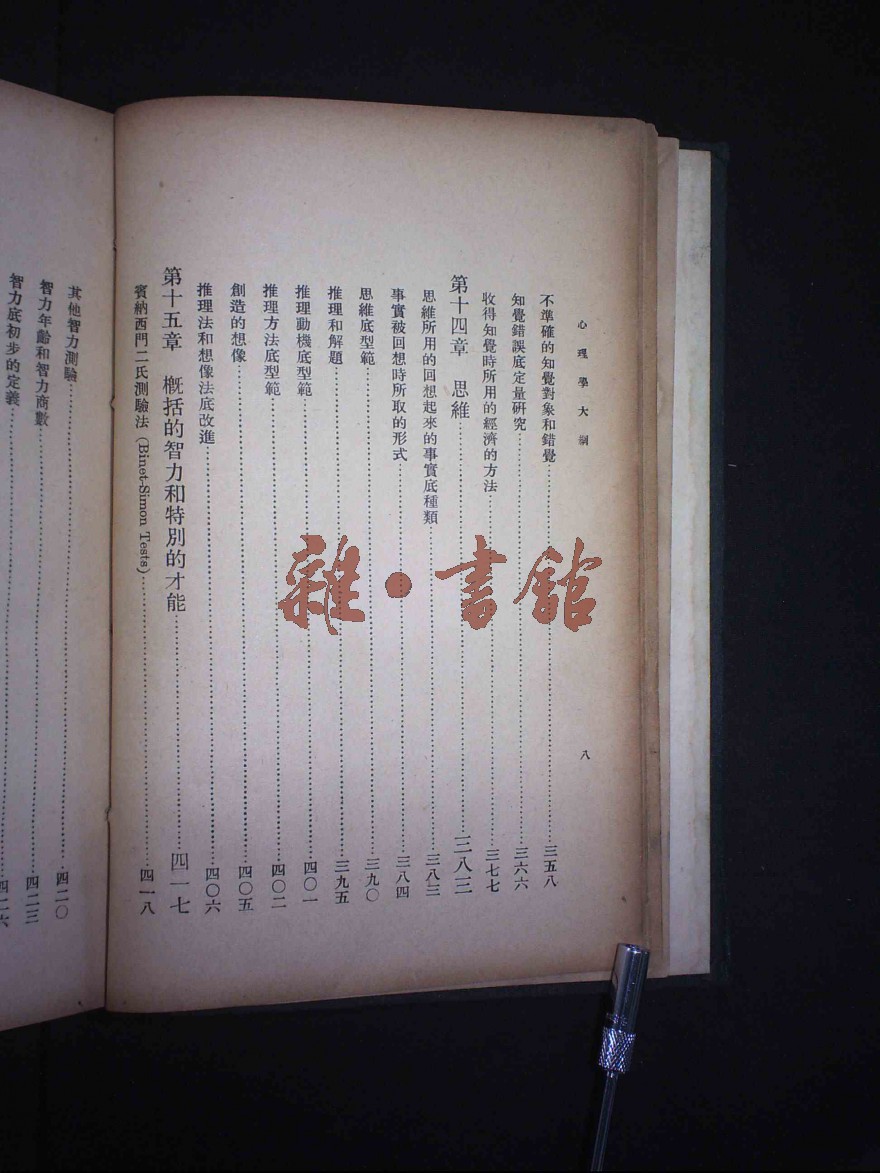 心理學大綱
八
不準確的知覺對象和錯覺……三五八
知覺錯誤底定量研究……三六六
收得知覺時所用的經濟的方法……三七七
第十四章 思維……三八三
思維所用的回想起來的事實底種類……三八三
事實被回想時所取的形式……三八四
思維底型範……三九〇
推理和解題……三九五
推理動機底型範……四〇一
推理方法底型範……四〇二
創造的想像……四〇五
推理法和想像法底改進……四〇六
第十五章 概括的智力和特別的才能……四一七
賓納西門二氏測驗法(Binet-Simon Tests)……四一八
其他智力測驗……四二〇
智力年齡和智力商數……四二三
智力底初步的定義……四二六
雜·書館